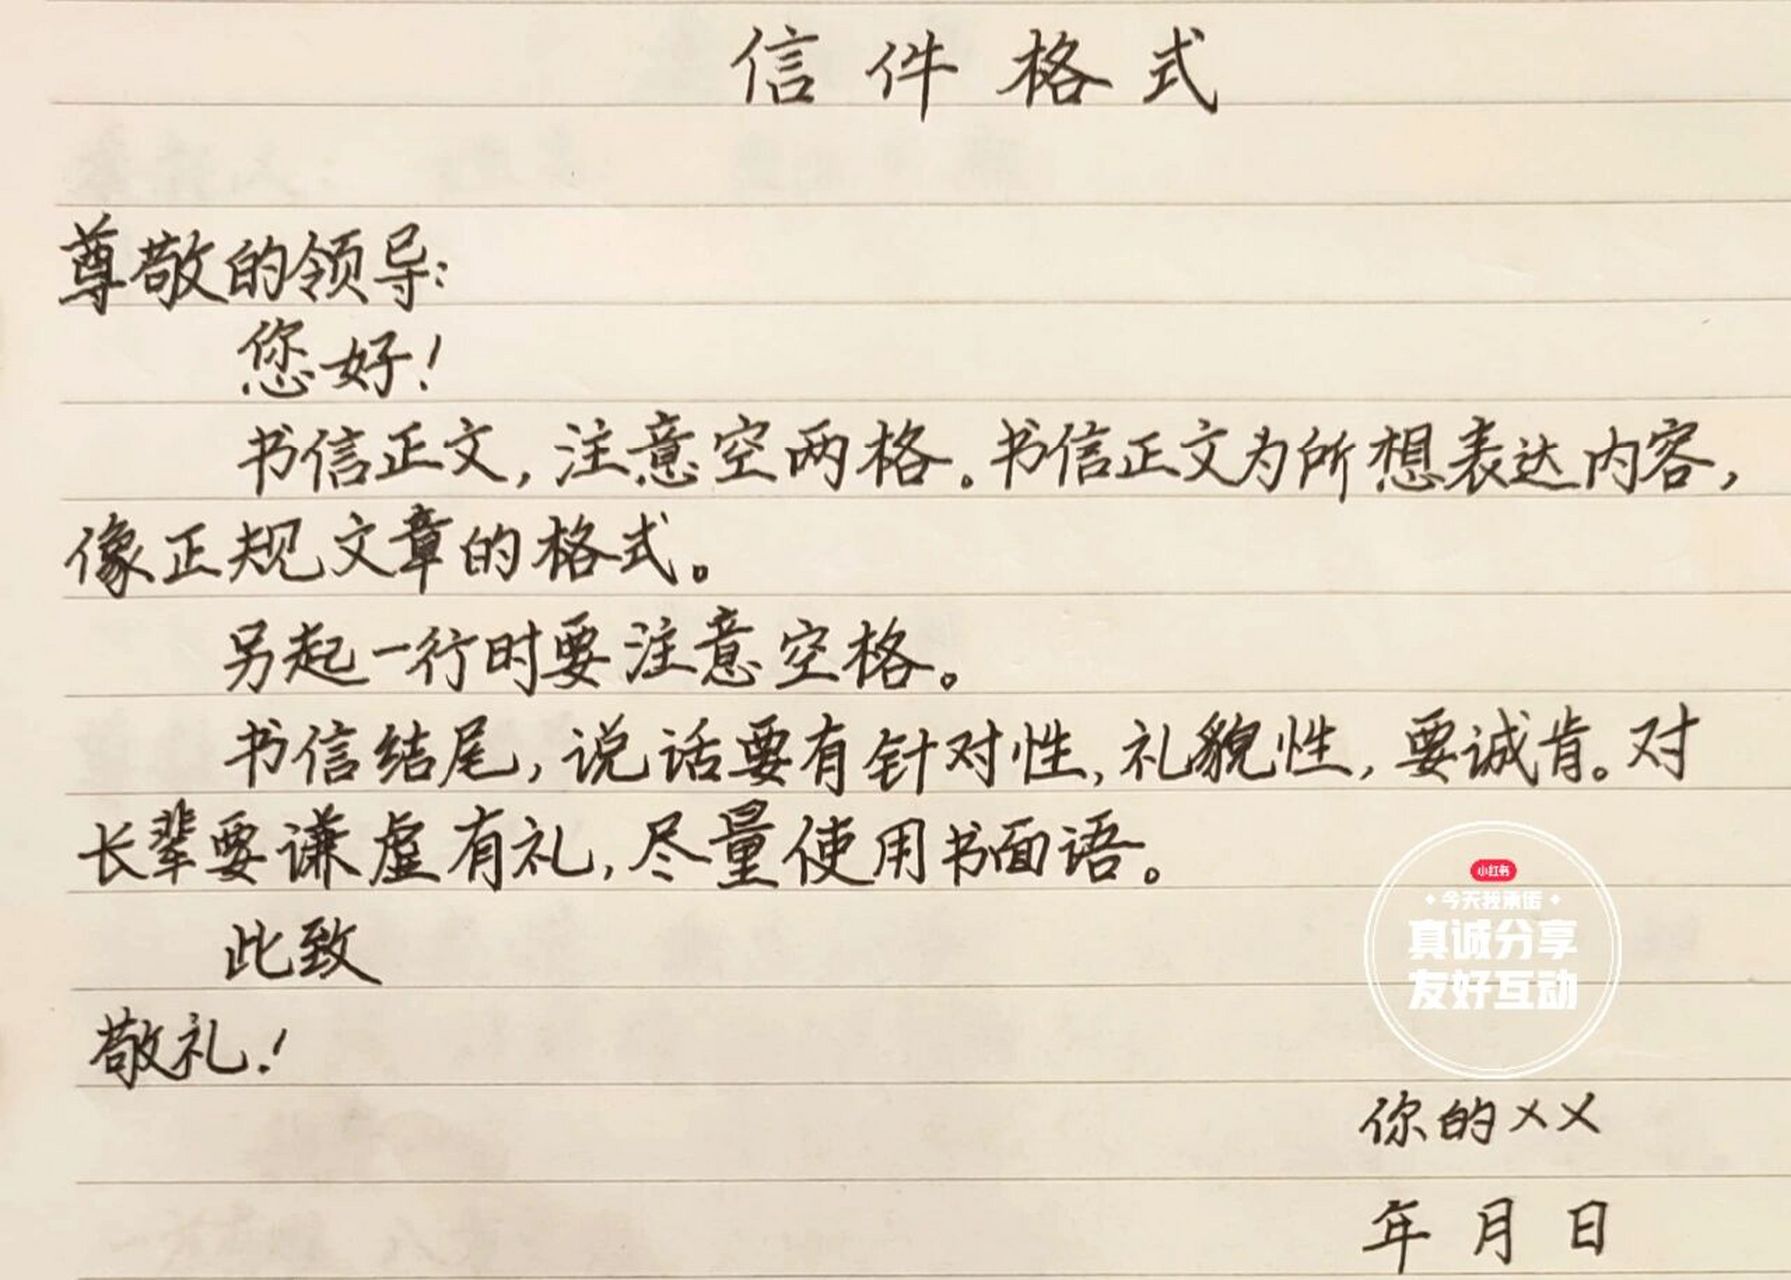 信件格式
尊敬的领导:
您好!
书信正文,注意空两格。书信正文为所想表达内容,
像正规文章的格式。
另起一行时要注意空格。
书信结尾,说话要有针对性,礼貌性,要诚肯。对
长辈要谦虚有礼,尽量使用书面语。
此致
敬礼!
小红书
今天我承诺
真诚分享
友好互动
你的××
年 月 日